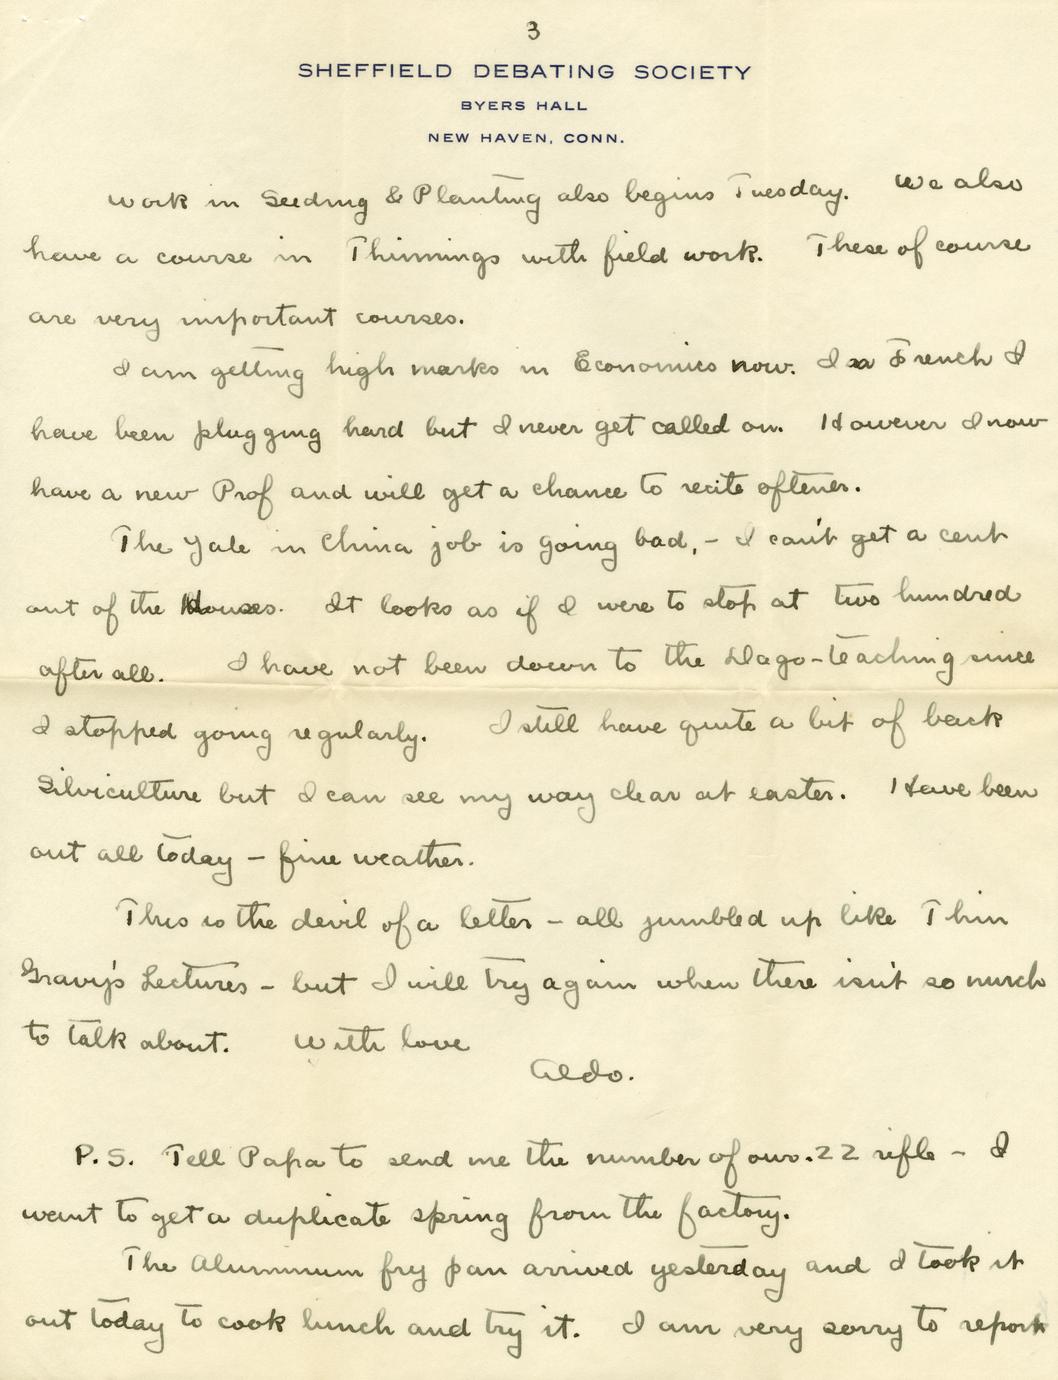 3
SHEFFIELD DEBATING SOCIETY
BYERS HALL
NEW HAVEN, CONN.
work in Seeding & Planting also begins Tuesday. We also
have a course in Thinnings with field work. These of course
are very important courses.
I am getting high marks in Economics now. In French I
have been plugging hard but I never get called on. However I now
have a new Prof and will get a chance to recite oftener.
The Yale in China job is going bad, - I can't get a cent
out of the Houses. It looks as if I were to stop at two hundred
after all. I have not been down to the Dago-teaching since
I stopped going regularly. I still have quite a bit of back
Silviculture but I can see my way clear at easter. Have been
out all today - fine weather.
This is the devil of a letter - all jumbled up like Thin
Gravy's Lectures - but I will try again when there isn't so much
to talk about. With love
Aldo.
P.S. Tell Papa to send me the number of our .22 rifle - I
want to get a duplicate spring from the factory.
The Aluminum fry pan arrived yesterday and I took it
out today to cook lunch and try it. I am very sorry to report